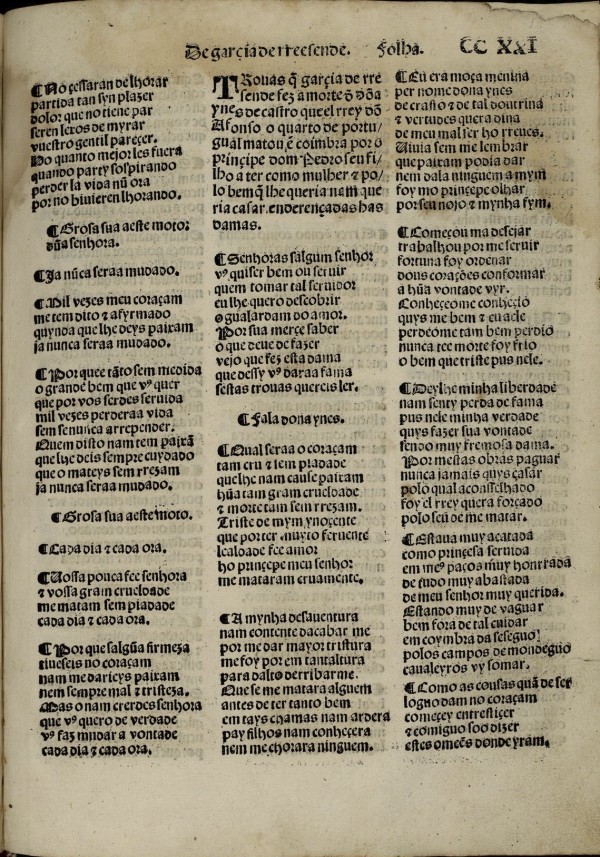 De garçia de rreesende. Folha. CC XXI
¶No çessaran de lhorar
partida tan syn plazer
dolor que no tiene par
seren lexos de myrar
vuestro gentil pareçer.
No quanto mejor les fuera
quando party sospirando
perder la vida nũ ora
por no biuieren lhorando.
¶Grosa sua a este motor
dũa senhora.
¶Ja nũca seraa mudado.
¶Mil vezes meu coraçam
me tem dito & afyrmado
quynda que lhe deys paixam
ja nunca seraa mudado.
¶Por quee tãto sem medida
o grande bem que vꝰ quer
que por vos serdes seruida
mil vezes perderaa vida
sem se nunca arrepender.
Quem disto nam tem paixã
que lhe deis sempre cuydado
que o mateys sem rrezam
ja nunca seraa mudado.
¶Grosa sua a este moto.
¶Cada dia & cada ora.
¶Uossa pouca fee senhora
& vossa gram crueldade
me matam sem piadade
cada dia & cada ora.
¶Por que salgũa firmeza
tiueseis no coraçam
nam me darieys paixam
nem sempre mal & tristeza.
Mas o nam crerdes senhora
que vꝰ quero de verdade
vꝰ faz mudar a vontade
cada dia & cada ora.
TRouas q̃ garçia de rre
sende fez a morte d̃ dõa
ynes de castro que el rrey dõ
Afonso o quarto de portu-
gual matou ẽ coimbra por o
prinçipe dom Pedro seu fi-
lho a ter como mulher & po-
lo bem q̃ lhe queria nam que
ria casar. enderençadas has
damas.
¶Senhoras salgum senhor
vꝰ quiser bem ou seruir
quem tomar tal seruidor
eu lhe quero descobrir
o gualardam do amor.
Por sua merçe saber
o que deue de fazer
vejo que fez esta dama
que dessy vꝰ daraa fama
sestas trouas quereis ler.
¶Fala dona ynes.
¶Qual seraa o coraçam
tam cru & sem piadade
que lhe nam cause paixam
hũa tam gram crueldade
& morte tam sem rrezam.
Triste de mym ynoçente
que por ter muyto feruente
lealdade fee amor
ho prinçepe meu senhor
me mataram cruamente.
¶A mynha desauentura
nam contente dacabar me
por me dar mayor tristura
me foy por em tantaltura
para dalto derribar me.
Que se me matara alguem
antes de ter tanto bem
em tays chamas nam ardera
pay filhos nam conheçera
nem me chorara ninguem.
¶Eu era moça menina
per nome dona ynes
de crasto & de tal doutrina
& vertudes quera dina
de meu mal ser ho rreues.
Uiuia sem me lembrar
que paixam podia dar
nem dala ninguem a mym
foy mo prinçepe olhar
por seu nojo & mynha fym.
¶Começou ma desejar
trabalhou por me seruir
fortuna foy ordenar
dous corações conformar
a hũa vontade vyr.
Conheçeo me conheçio
quys me bem & eu a ele
perdeo me tam bem perdio
nunca tee morte foy frio
o bem que triste pus nele.
¶Dey lhe minha liberdade
nam senty perda de fama
pus nele minha verdade
quys fazer sua vontade
sendo muy fremosa dama.
Por mestas obras paguar
nunca jamais quys casar
polo qual aconselhado
foy el rrey quera forçado
polo seu de me matar.
¶Estaua muy acatada
como prinçesa seruida
em meꝰ paços muy honrrada
de tudo muy abastada
de meu senhor muy querida.
Estando muy de vaguar
bem fora de tal cuidar
em coymbra daseseguo
polos campos de mondeguo
caualeyros vy somar.
¶Como as cousas quã de ser
loguo dam no coraçam
começey entresticer
& comiguo soo dizer
estes omẽs donde yram.